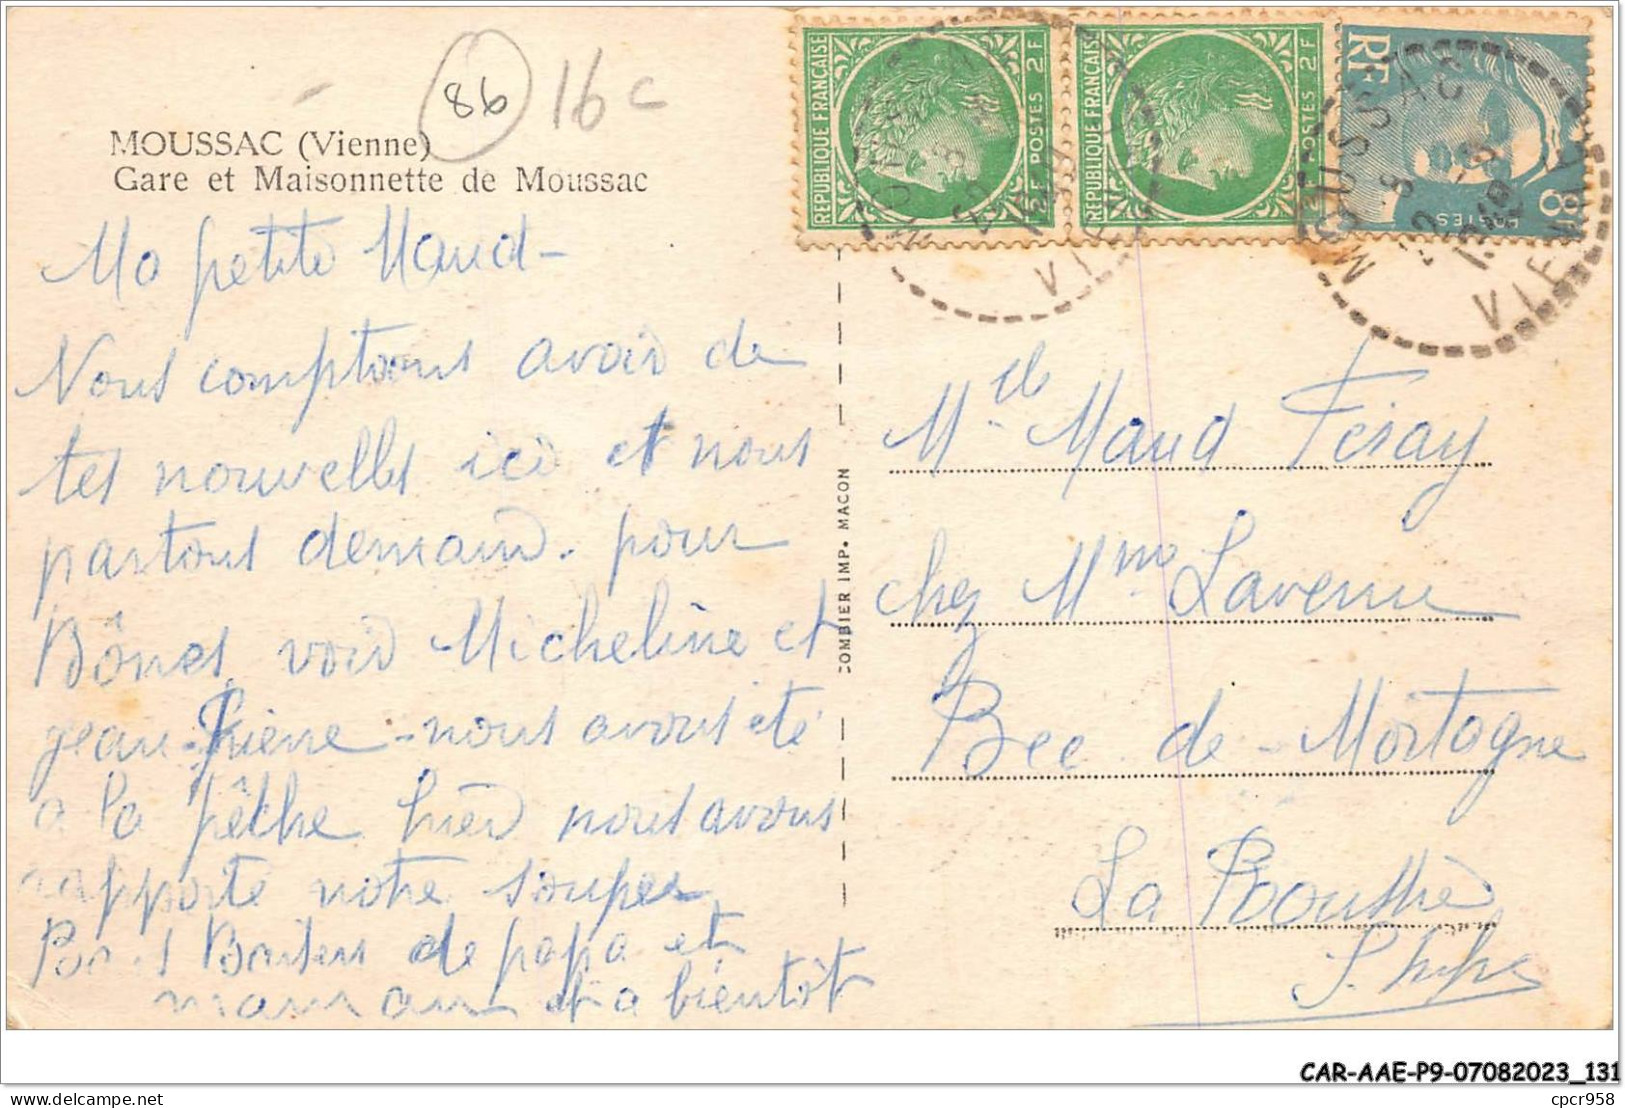 86
16 c
MOUSSAC (Vienne)
Gare et Maisonnette de Moussac
REPUBLIQUE FRANÇAISE
POSTES 2F
REPUBLIQUE FRANÇAISE
POSTES 2F
RF
POSTES
8F
MOUSSAC
VIENNE
Ma petite Maud-
Nous comptions avoir de
tes nouvelles ici et nous
partons demain. pour
voir Micheline et
jean-Pierre - nous avons été
a la pêche hier nous avons
rapporté notre souper
Bons Baisers de papa et
maman et a bientôt
COMBIER IMP. MACON
Mlle Maud Feray
chez Mme Lavenu
Bec-de-Mortagne
La
S. Infre
CAR-AAE-P9-07082023_131
cpcr958